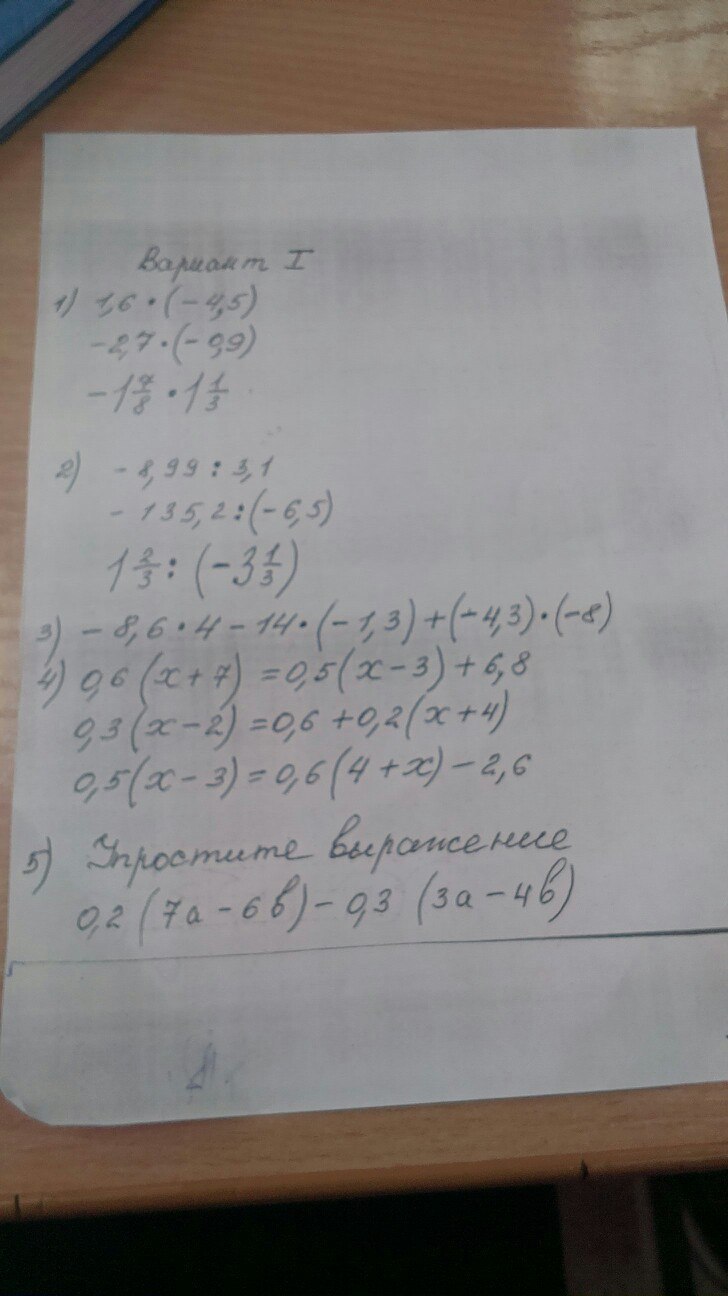 Вариант I
1) 1,6 · (-4,5)
-2,7 · (-0,9)
-1 7/8 · 1 1/3
2) -8,99 : 3,1
-135,2 : (-6,5)
1 2/3 : (-3 1/3)
3) -8,6 · 4 - 14 · (-1,3) + (-4,3) · (-8)
4) 0,6 (x + 7) = 0,5 (x - 3) + 6,8
0,3 (x - 2) = 0,6 + 0,2 (x + 4)
0,5 (x - 3) = 0,6 (4 + x) - 2,6
5) Упростите выражение
0,2 (7a - 6b) - 0,3 (3a - 4b)